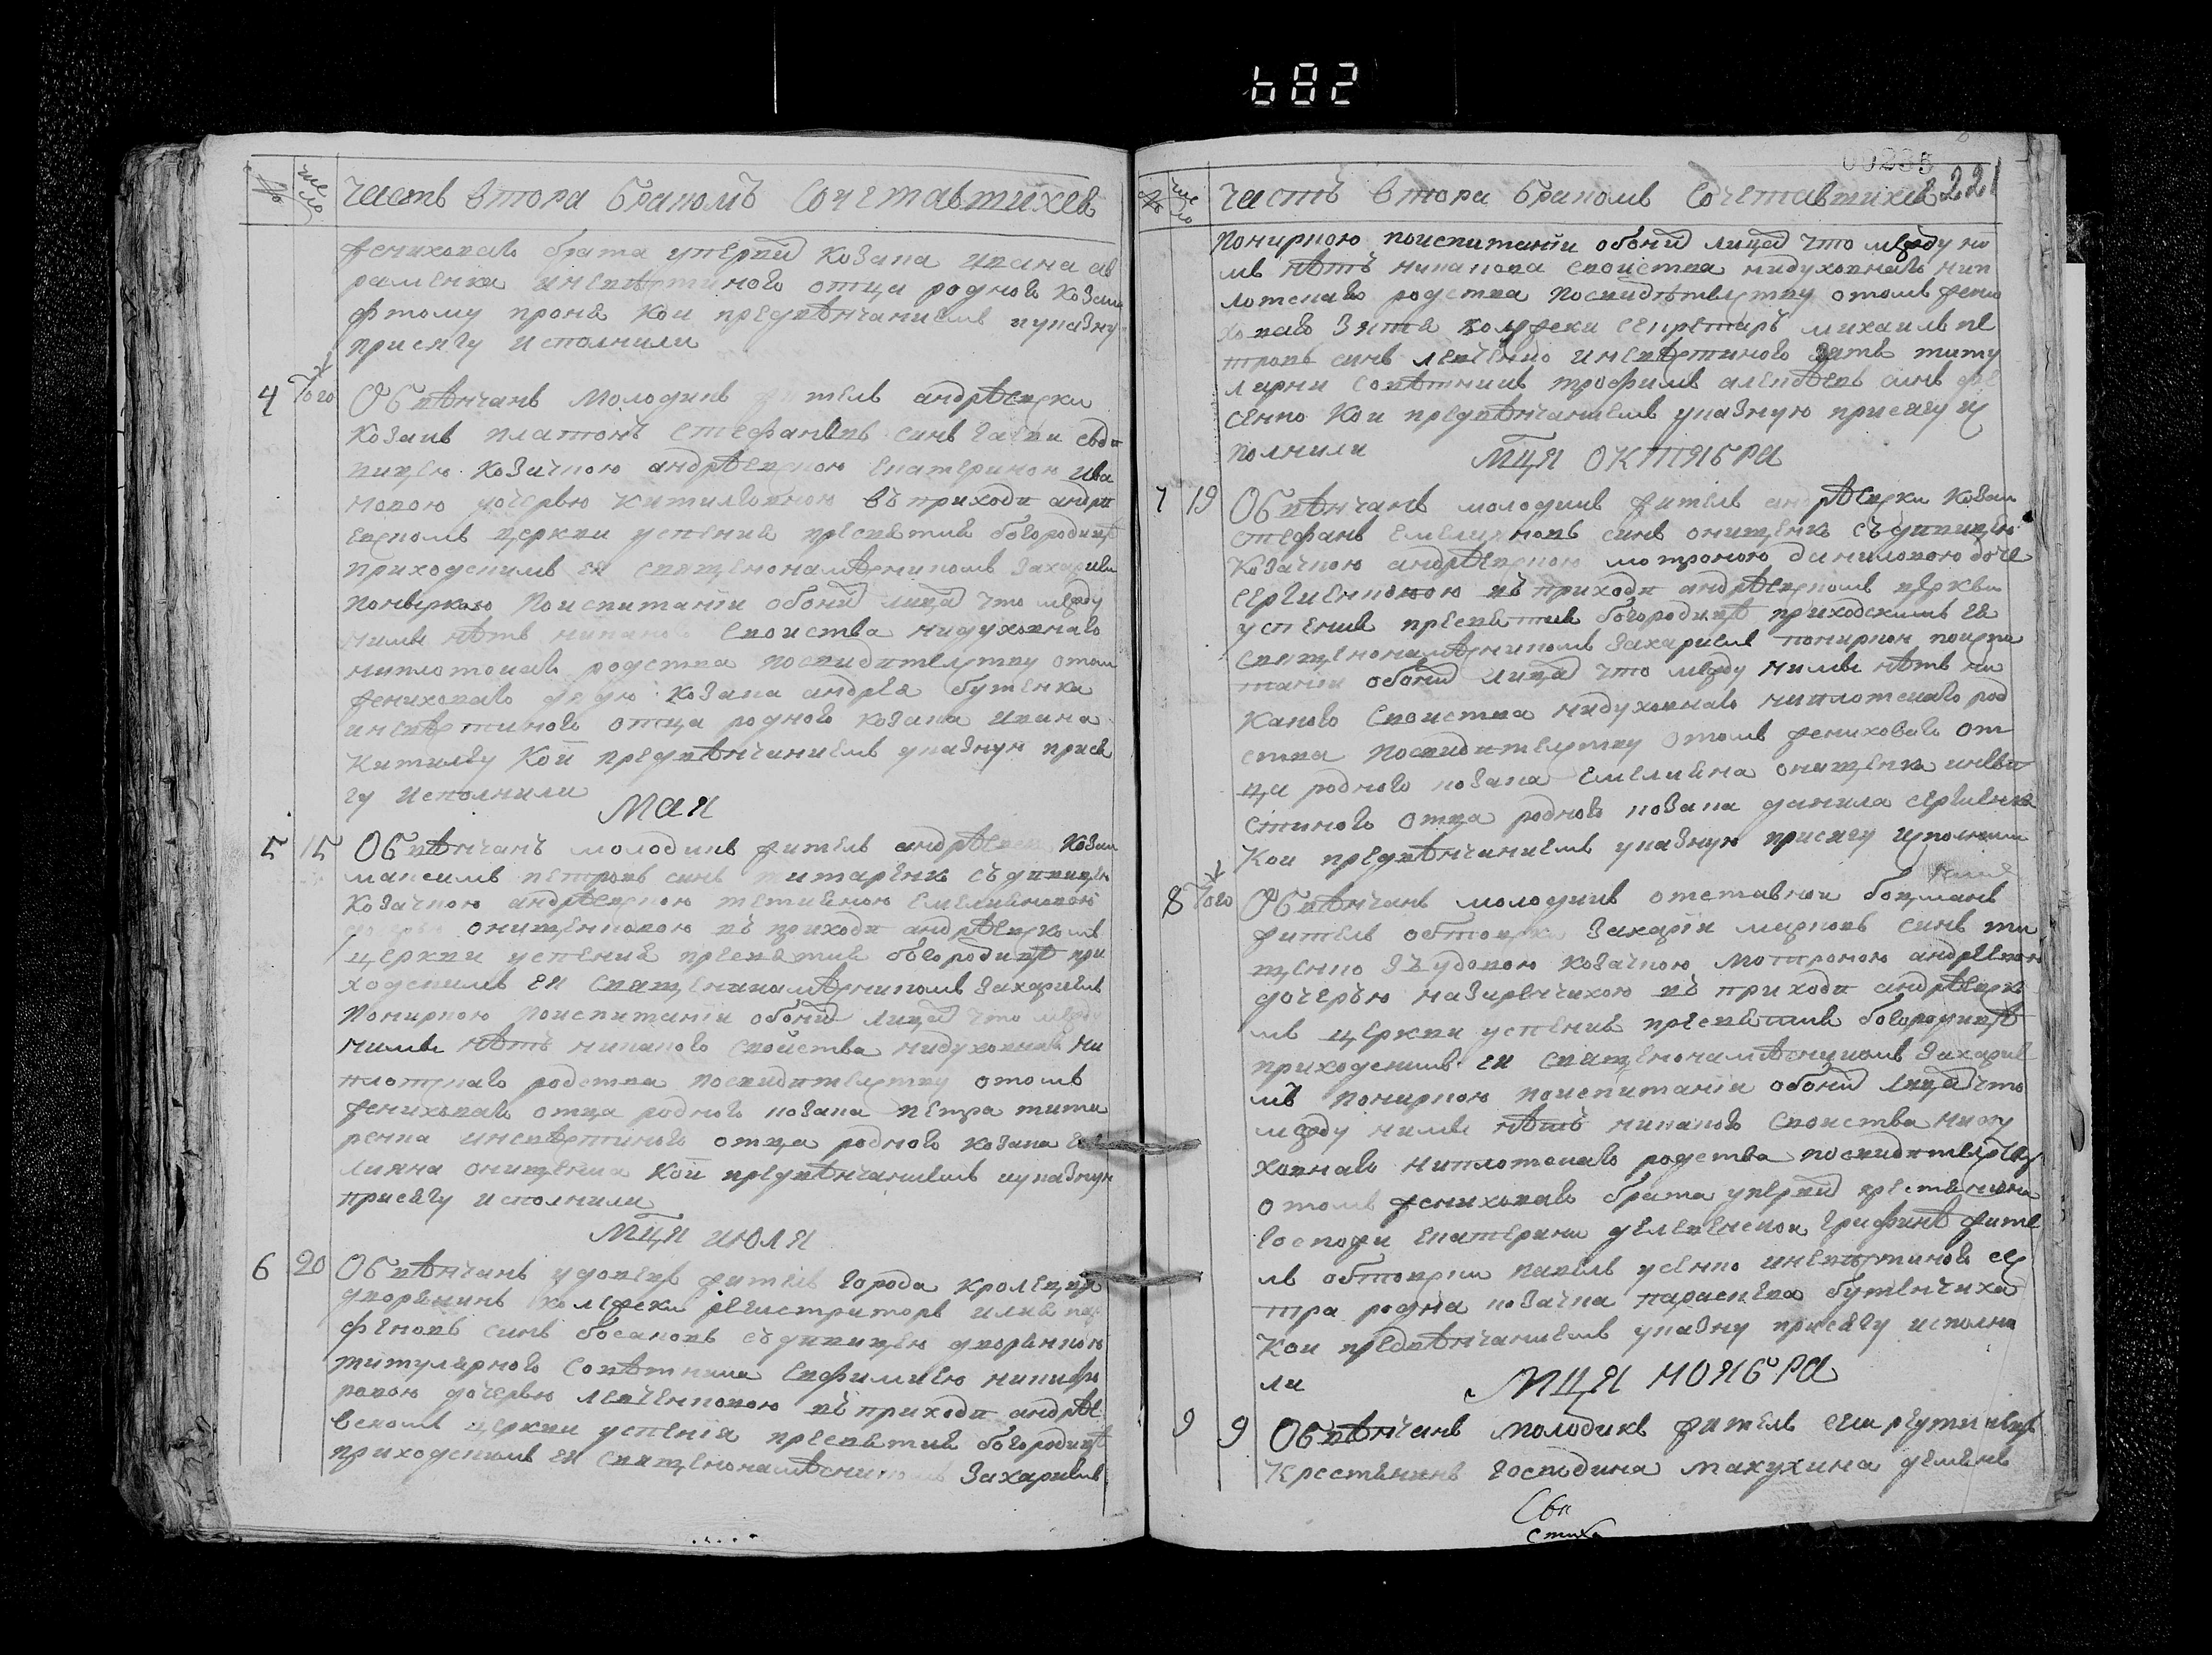 682
№ число Часть втора бракомъ Сочетавшихсѧ
жениховаго брата уперви Козака ивана ав
раменка иневѣстиного отца родного Козака
фтому проня Кои предвѣнчаниемъ иуказну
присягу исполнили
4 Того 20 Обвѣнчанъ молодикъ житель андрѣевски
Козакъ платонъ стефановъ синъ гаевки сдѣ
вицею Козачкою андрѣевскою екатериною ива
новою дочерью китилевкою въ приходи андрѣ
евскомъ церкви успения пресвятия богородици
приходскимъ ея священонамѣсникомъ Захариемъ
Понѣркою Поиспитании обоих лицъ что между
ними нѣтъ никакого своиства нидуховнаго
ниплотскаго родства посвидителству отом
жениховаго дядю Козака андрея бутенка
иневѣстиного отца родного козака ивана
Китилеву Кои предвѣнчаниемъ указную прися
гу исполнили
Мая
5 15 Обвѣнчанъ молодикъ житель андрѣевски козак
максимъ петровъ синъ титаренко съдивицею
Козачкою андрѣевскою тетияною емелияновою
дочерью онищенковою въ приходи андрѣевскомъ
церкви успения пресвятия богородици при
ходскимъ ея священонамѣсникомъ Захариемъ
Понирною поиспитании обоих лицъ что между
ними нѣтъ никакого своиства нидуховнаго ни
плотскаго родства посвидителству отомъ
жениховаго отца родного козака петра тита
ренка иневѣстиного отца родного козака еме
лияна онищенка Кои предвѣнчаниемъ иуказную
присягу исполнили
Мця июля
6 20 Обвѣнчанъ удовецъ житель города кролевца
дворянинъ колежски регистраторъ илия пар
феновъ синъ босановъ съдивицею дворянкою
титулярного совѣтника евфимиею никифо
ровою дочерью левченковою въ приходи андрѣе
вскомъ церкви успения пресвятия богородици
приходскимъ ея священонамѣсникомъ Захариемъ
00235
№ число Часть втора бракомъ Сочетавшихсѧ 221
понирною поиспитании обоих лицъ что между ни
мъ нѣтъ никакова своиства нидуховнаго нип
лотскаго родства посвидѣтелству отомъ жени
ховаго Зятя колежски секретаръ михаилъ пе
тровъ синъ левченко иневѣстиного Зять титу
лярни совѣтникъ трофимъ алексѣевъ синъ фе
сенко Кои предвѣнчаниемъ указную присягу ис
полнили
Мця октября
7 19 Обвѣнчанъ молодикъ житель андрѣевски козак
стефанъ емелияновъ синъ онищенко съдивицею
Козачкою андрѣевскою мотроною даниловою доче
сергиенковою въ приходи андрѣевскомъ церкви
успения пресвятия богородици приходскимъ ея
священонамѣсникомъ Захариемъ понирною поиспи
тании обоих лицъ что между ними нѣтъ ни
какого своиства нидуховнаго ниплотскаго род
ства посвидителству отомъ жениховаго от
ца родного козака емелияна онищенка иневѣ
стиного отца родного козака данила сергиенка
Кои предвѣнчаниемъ указную присягу исполнили
8 Того 20 Обвѣнчанъ молодикъ отставнои боцманъ
житель обтовски Захарии марковъ синъ ти
щенко Зъудовою козачкою мотроною андреевою
дочерью назаренчихою въ приходи андрѣевско
мъ церкви успения пресвятия богородици
приходскимъ ея священонамѣсникомъ Захарие
мъ понирною поиспитании обоих лицъ что
между ними нѣтъ никакого своиства ниду
ховнаго ниплотскаго родства посвидителству
отомъ жениховаго брата уперви крестянина
госпожи екатерини графинѣ жите
ль обтовски павелъ усенко иневѣстиного сес
тра родна козачка параскева бутенчиха
Кои предвѣнчаниемъ указну присягу исполни
ли
Мця ноября
9 9 Обвѣнчанъ молодикъ житель села реутинецъ
Крестянинъ господина макухина демянъ